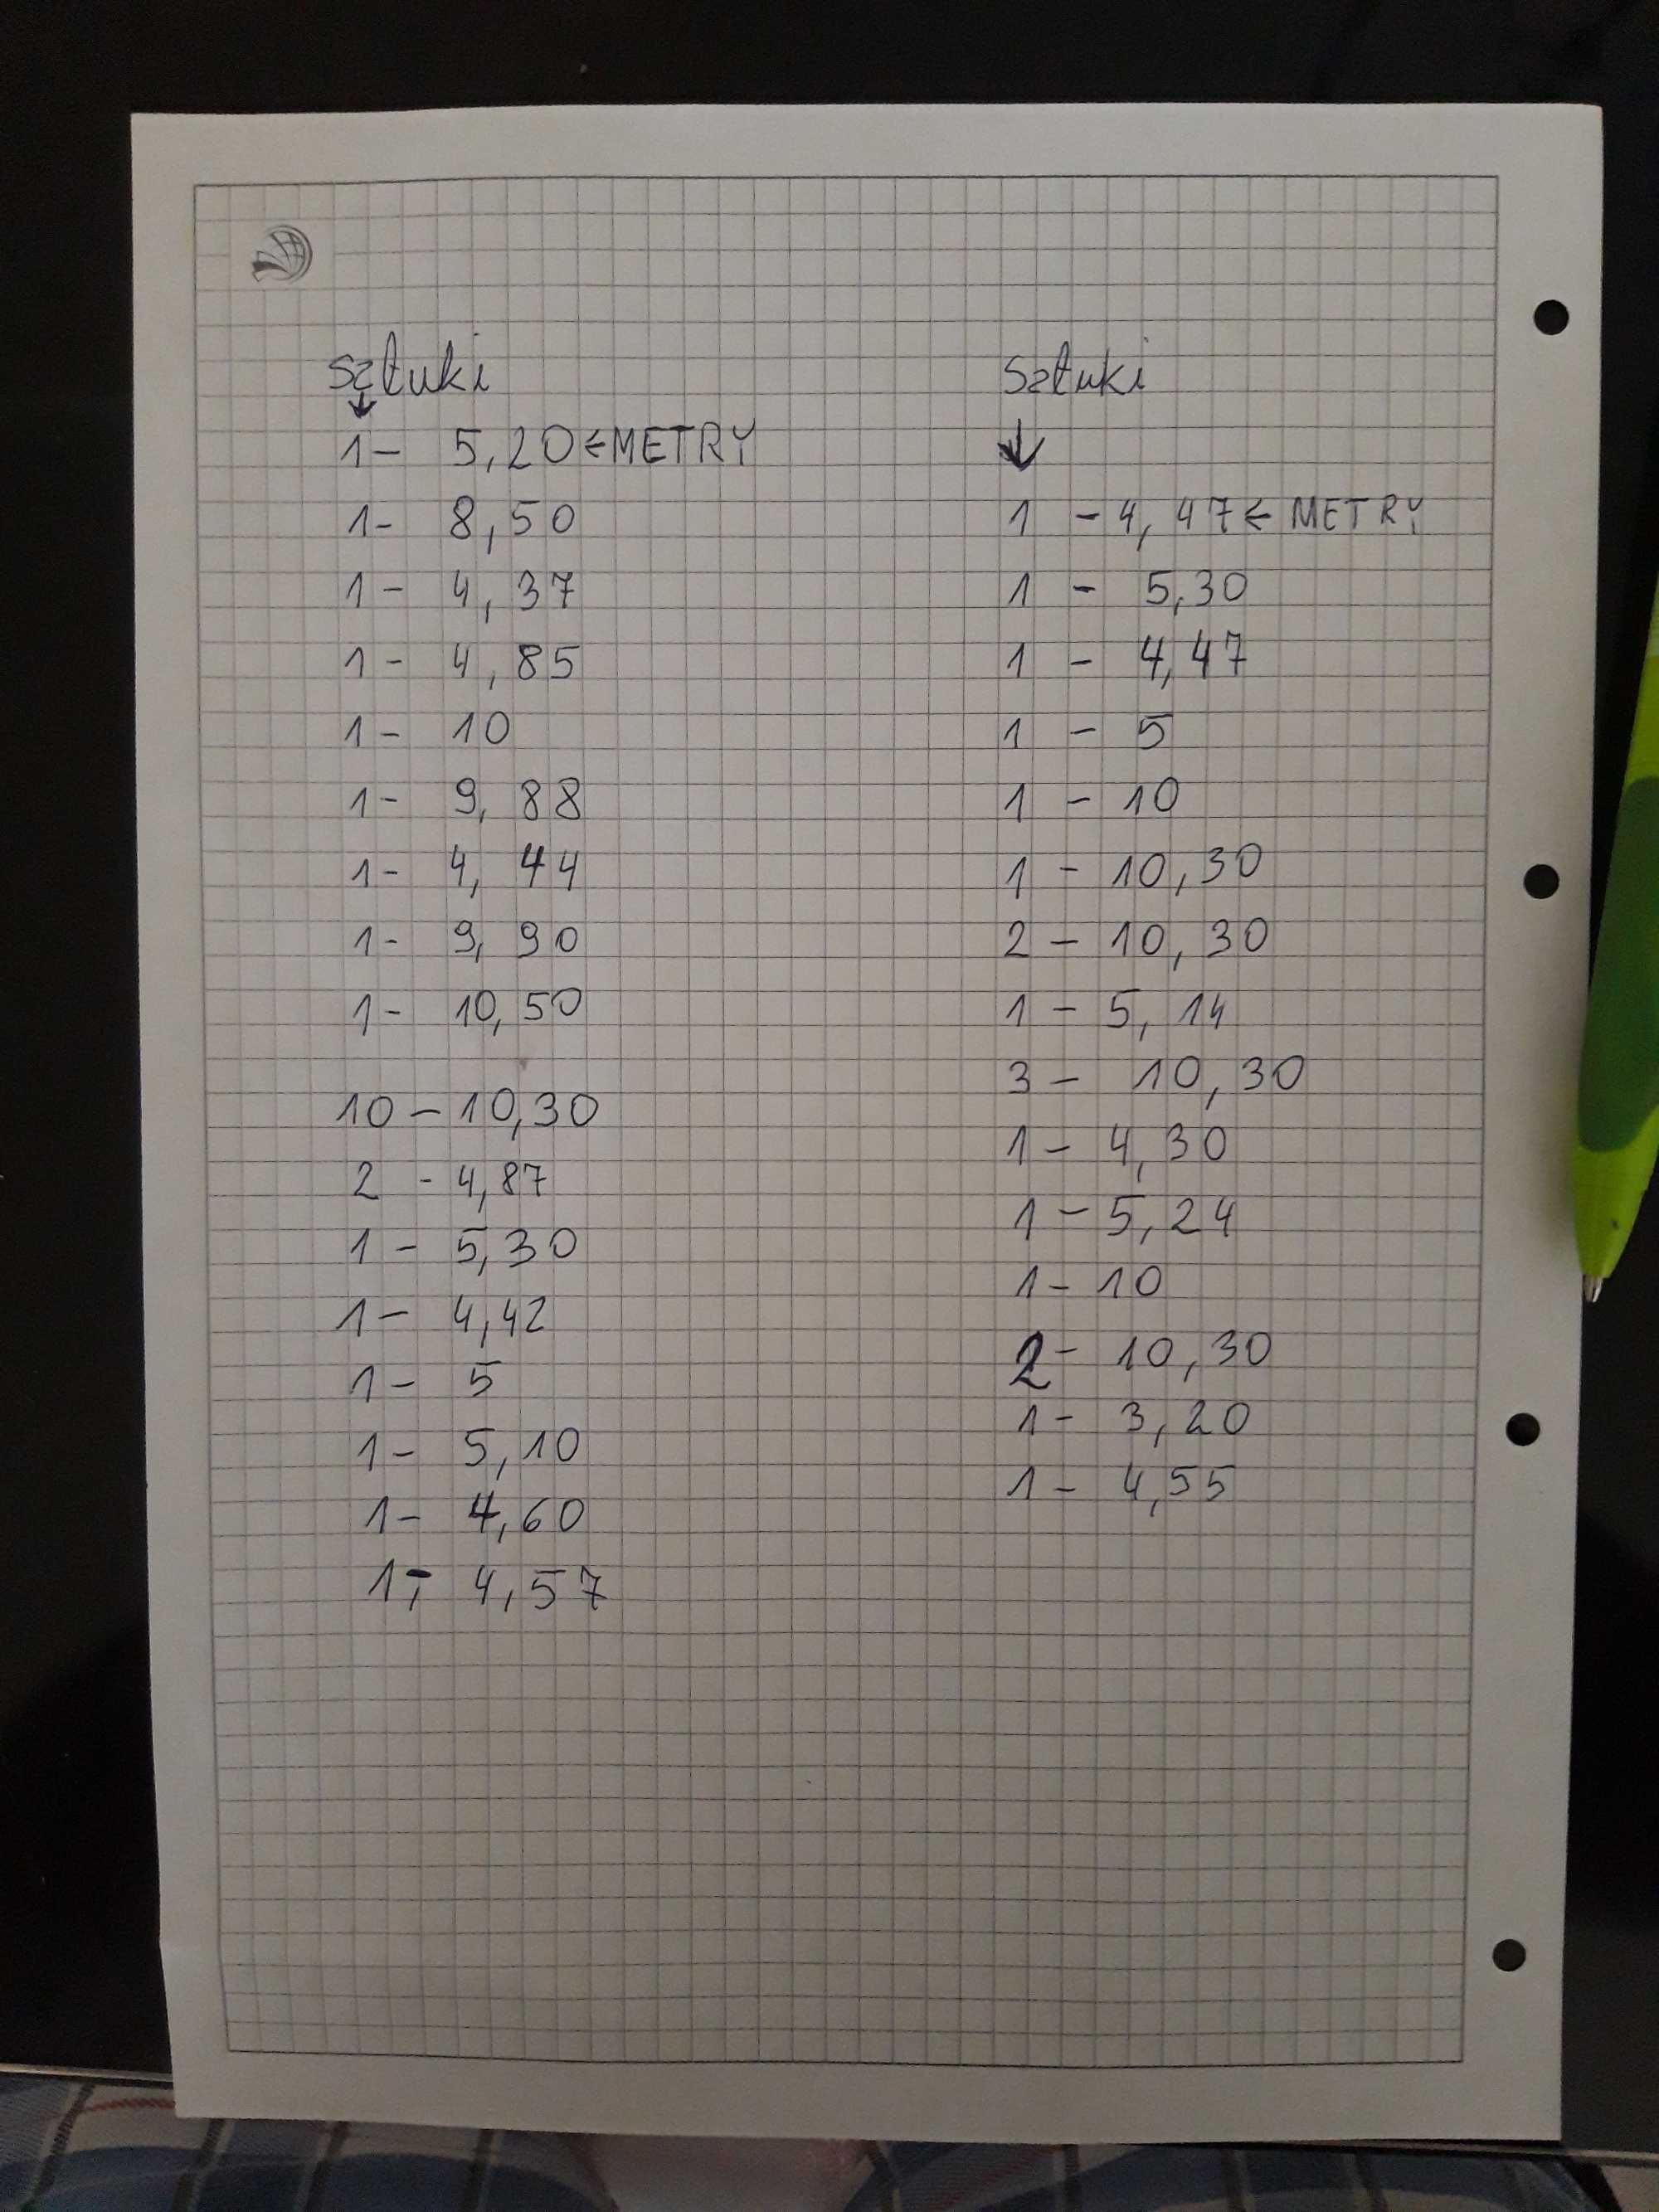 Sztuki
1 - 5,20 ← METRY
1 - 8,50
1 - 4,37
1 - 4,85
1 - 10
1 - 9,88
1 - 4,44
1 - 9,90
1 - 10,50
10 - 10,30
2 - 4,87
1 - 5,30
1 - 4,42
1 - 5
1 - 5,10
1 - 4,60
1,- 4,57
Sztuki
1 - 4,47 ← METRY
1 - 5,30
1 - 4,47
1 - 5
1 - 10
1 - 10,30
2 - 10,30
1 - 5,14
3 - 10,30
1 - 4,30
1 - 5,24
1 - 10
2 - 10,30
1 - 3,20
1 - 4,55